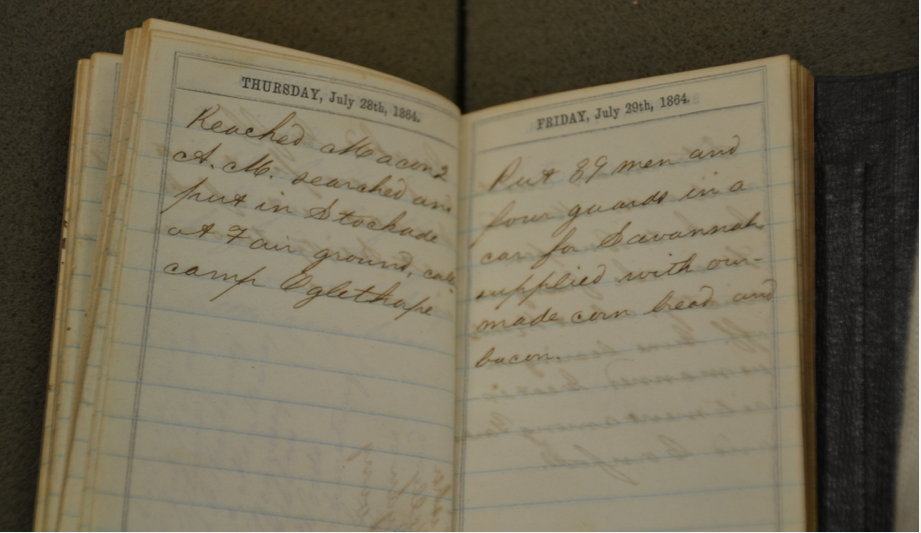 THURSDAY, July 28th, 1864.
Reached Macon 2
A. M. searched and
put in Stockade
at Fair ground, call
camp Oglethope
FRIDAY, July 29th, 1864.
Put 89 men and
four guards in a
car for Savannah
supplied with our-
made corn bead and
bacon.